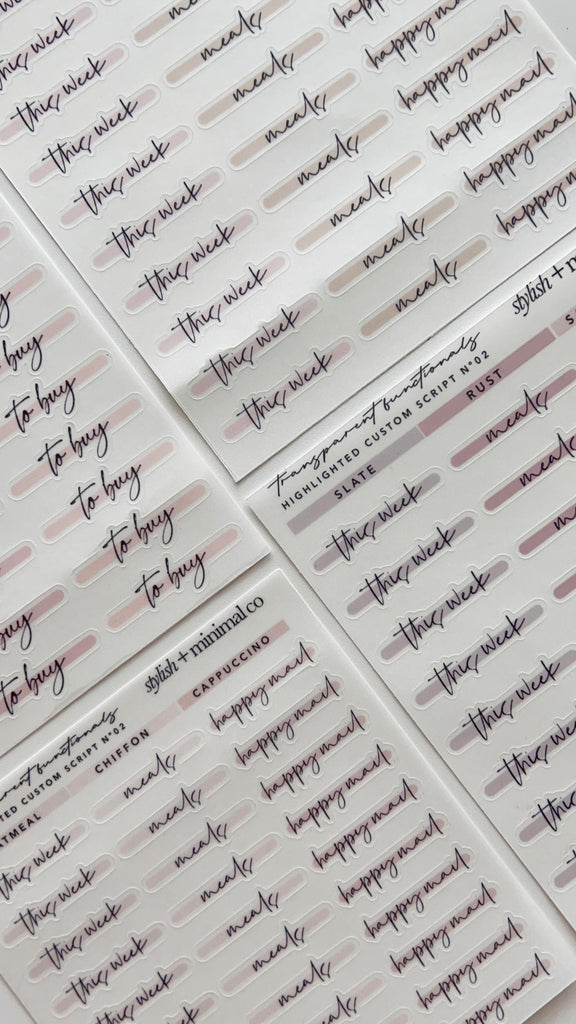 this week
this week
this week
this week
this week
this week
this week
this week
this week
meals
meals
meals
meals
meals
meals
meals
happy mail
happy mail
happy mail
happy mail
happy mail
happy mail
buy
to buy
to buy
to buy
to buy
to buy
buy
to buy
stylish + m
transparent functionals
HIGHLIGHTED CUSTOM SCRIPT N°02
SLATE
RUST
this week
this week
this week
this week
this week
this week
this week
meals
meals
meals
stylish + minimal co
functionals
CUSTOM SCRIPT N°02
CHIFFON
CAPPUCCINO
this week
this week
this week
this week
this week
meals
meals
meals
meals
meals
meals
meals
happy mail
happy mail
happy mail
happy mail
happy mail
happy mail
happy mail
happy mail